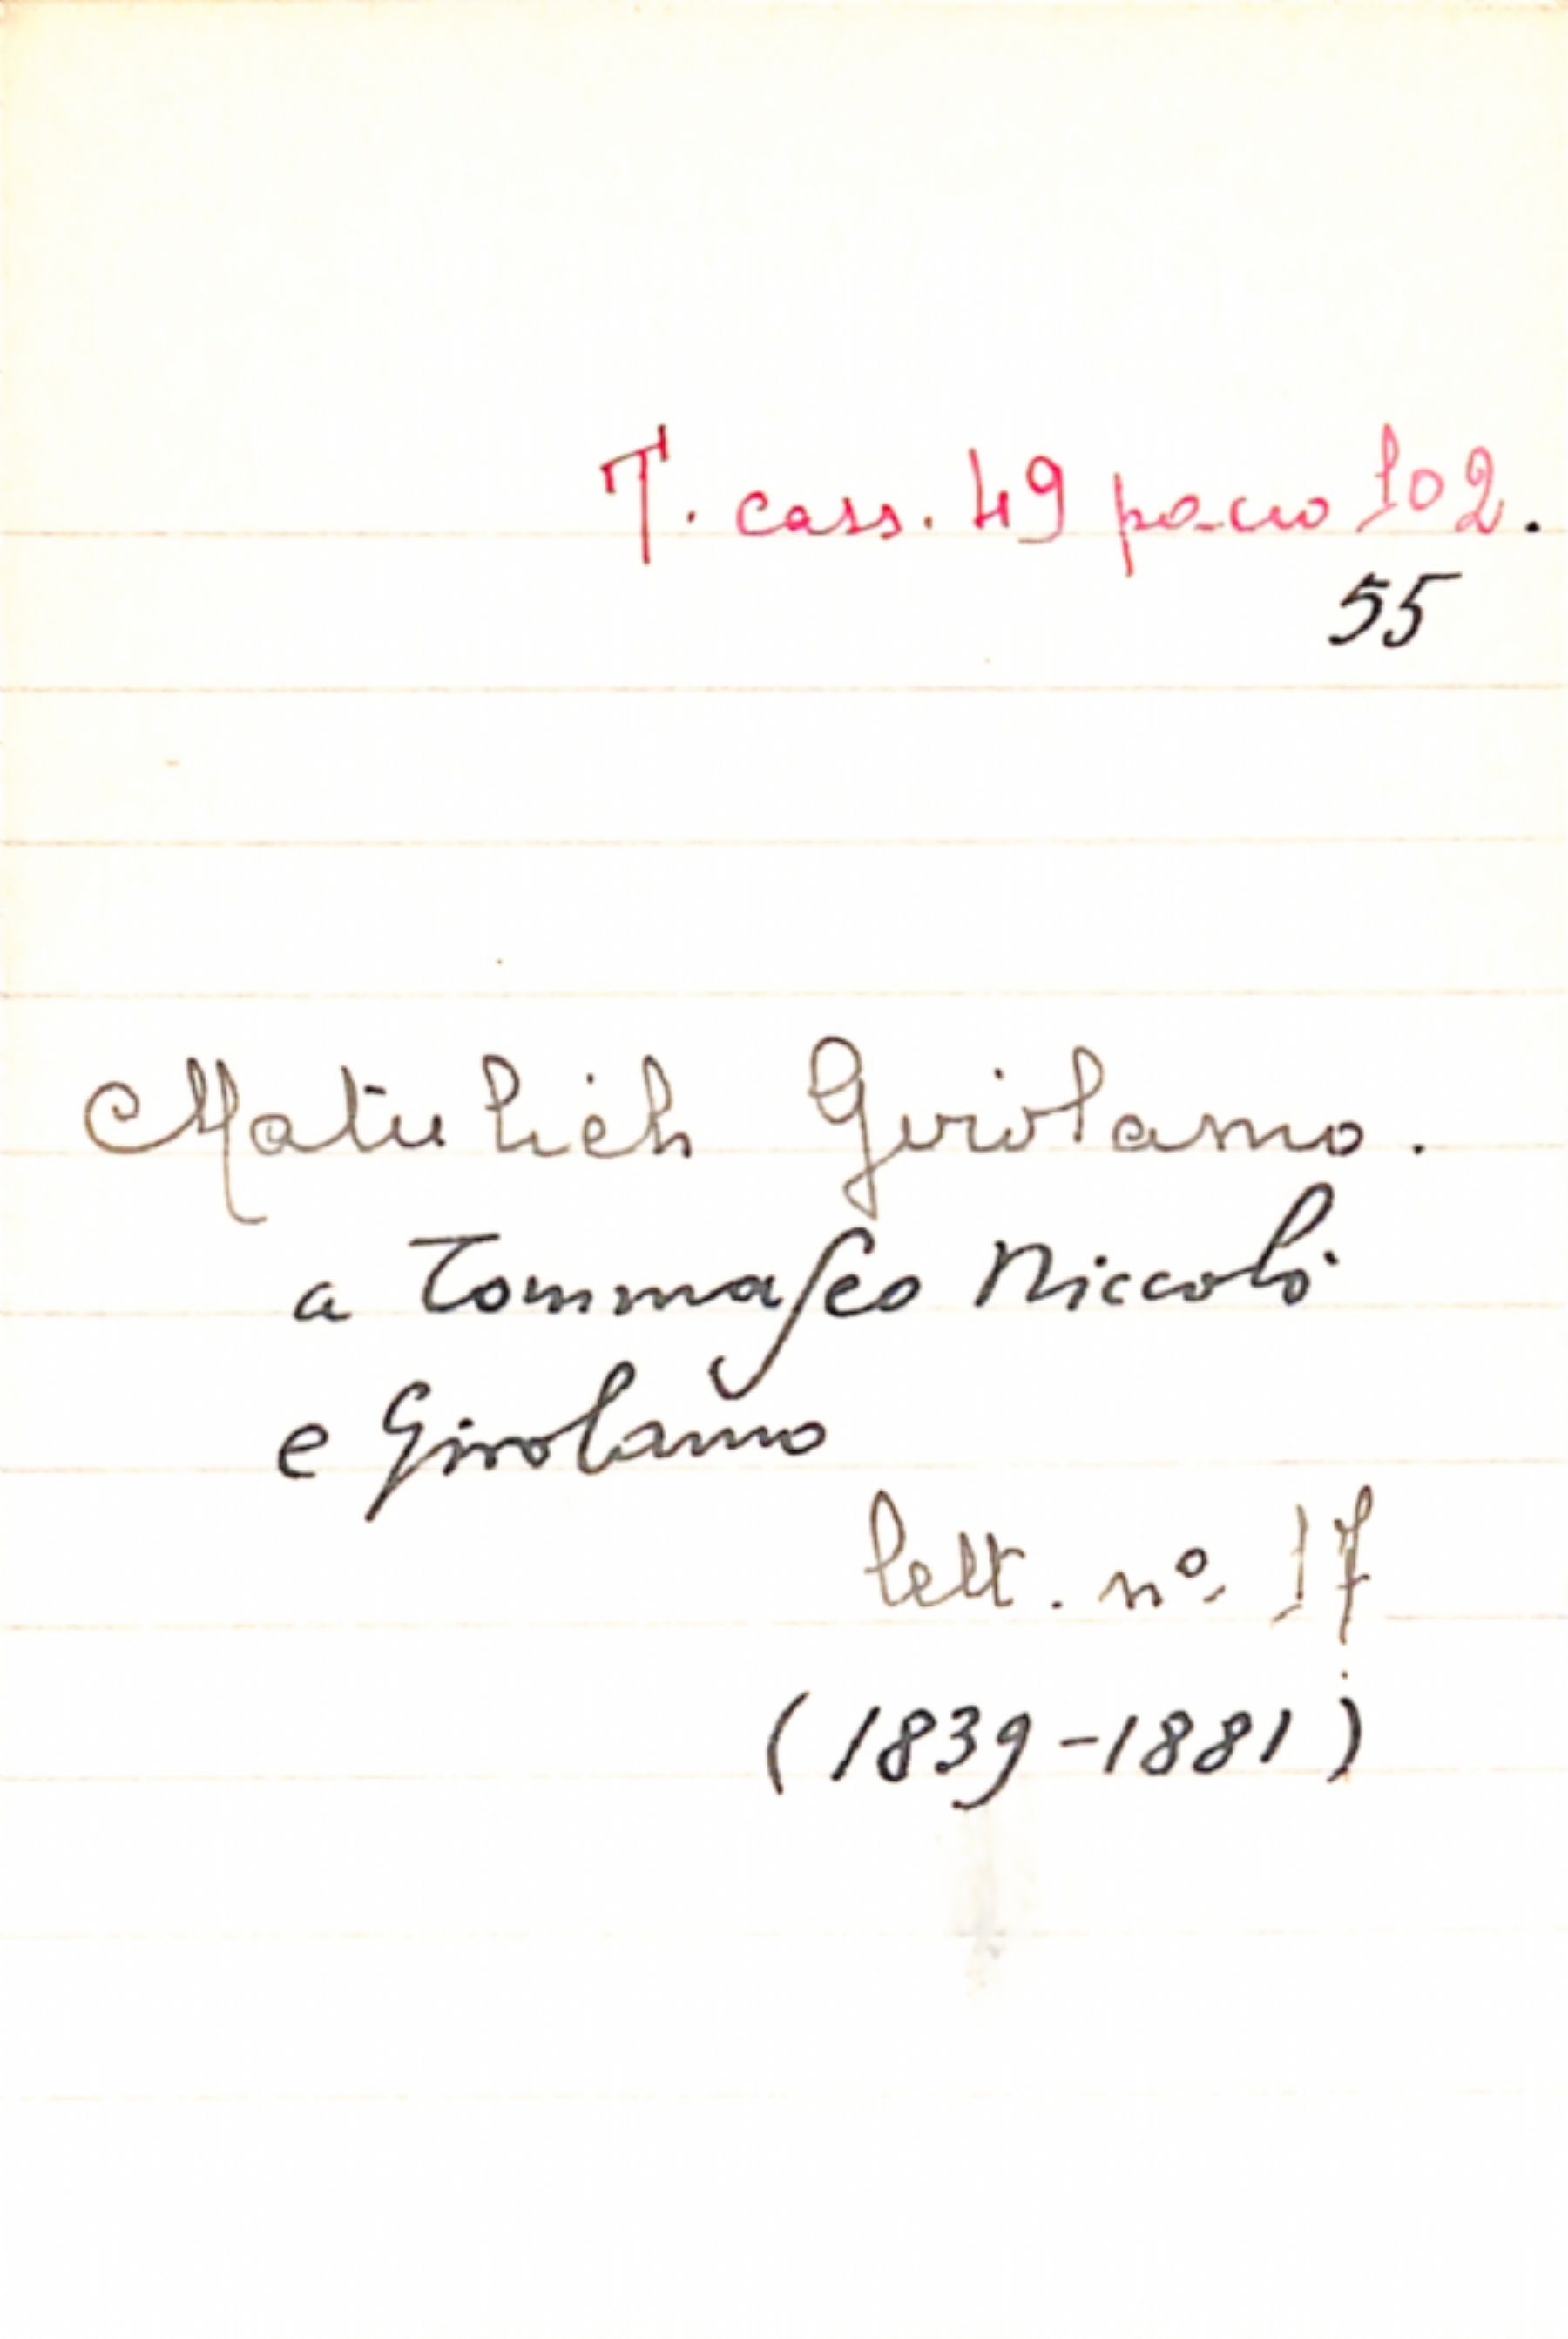 T. cass. 49 pacco 102.
55
Matulich Girolamo.
a Tommaseo Niccolò
e Girolamo
lett. nº. 17
(1839-1881)